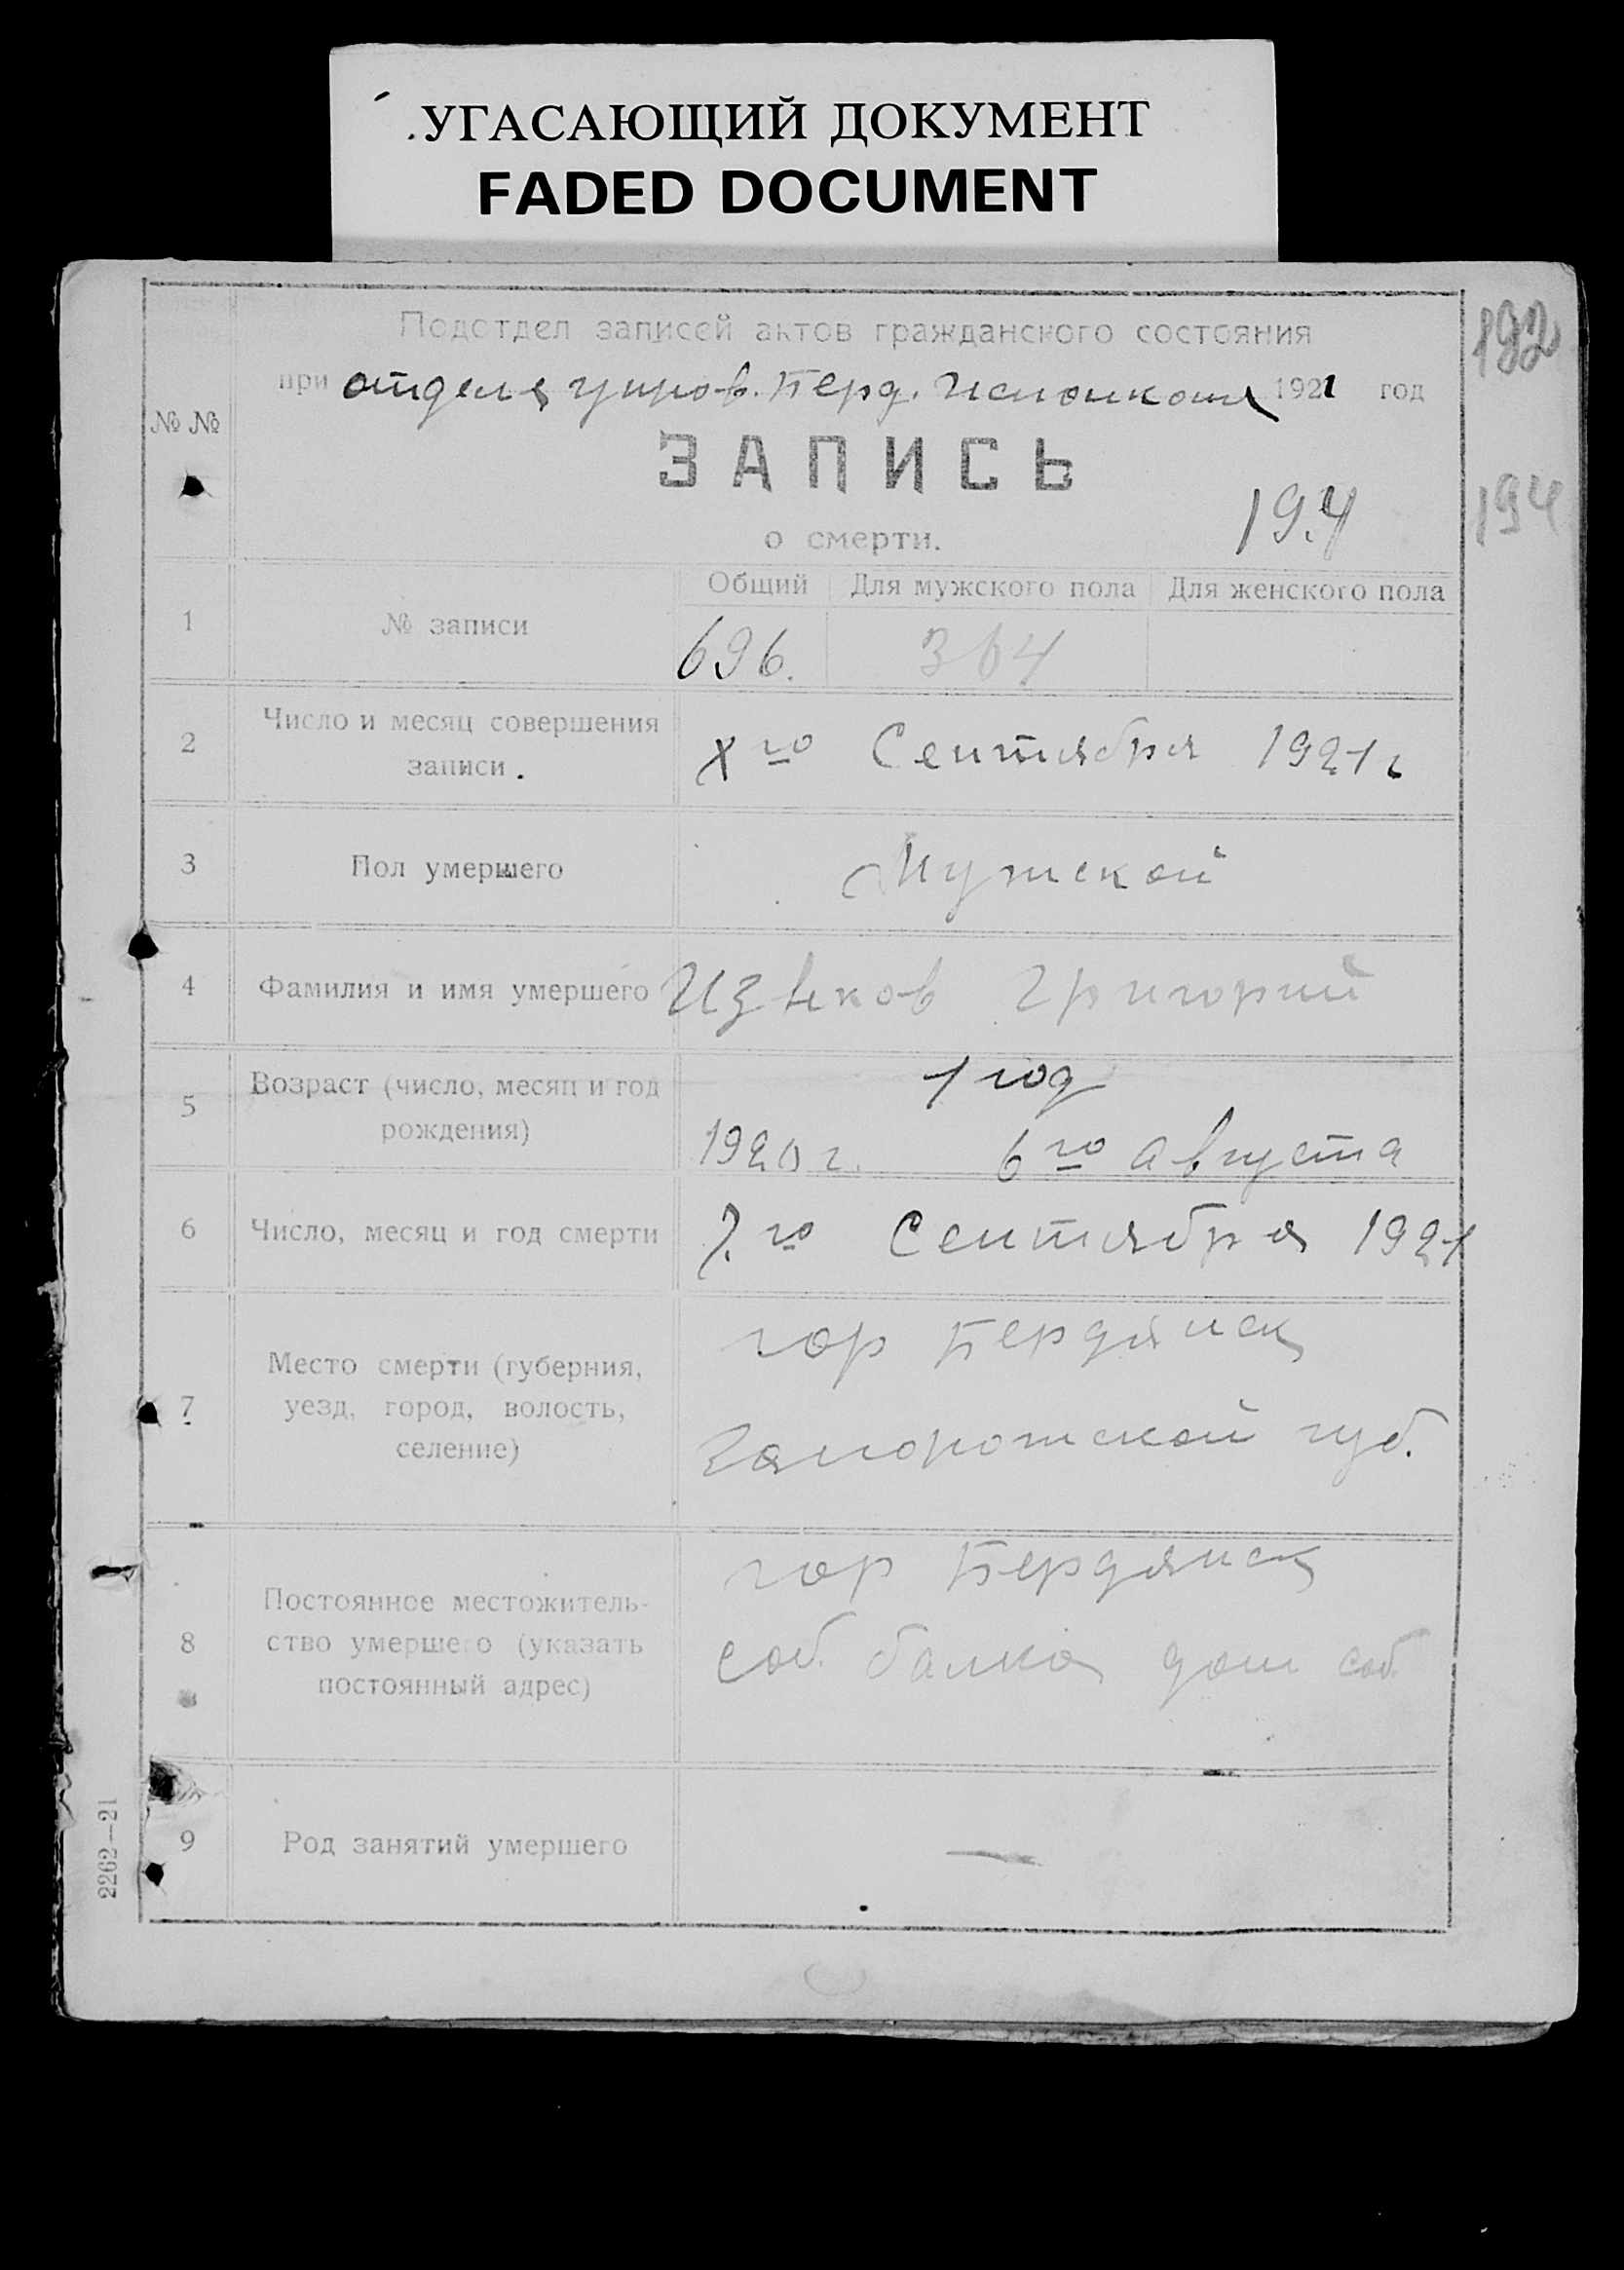 УГАСАЮЩИЙ ДОКУМЕНТ
FADED DOCUMENT
192
194
Подотдел записей актов гражданского состояния
при отдела управ. Берд. Исполкома 1921 год
№ №
ЗАПИСЬ
о смерти.
194
Общий Для мужского пола Для женского пола
1 № записи 696. 364
2 Число и месяц совершения
записи. го Сентября 1921 г
3 Пол умершего Мужской
4 Фамилия и имя умершего Извеков Григорий
5 Возраст (число, месяц и год
рождения)
1 год
1920 г. 6 го августа
6 Число, месяц и год смерти 7. го Сентября 1921
7 Место смерти (губерния,
уезд, город, волость,
селение)
гор Бердянск
Запорожской губ.
8 Постоянное местожитель-
ство умершего (указать
постоянный адрес)
гор Бердянск
соб. балка дом соб.
9 Род занятий умершего —
2262—21